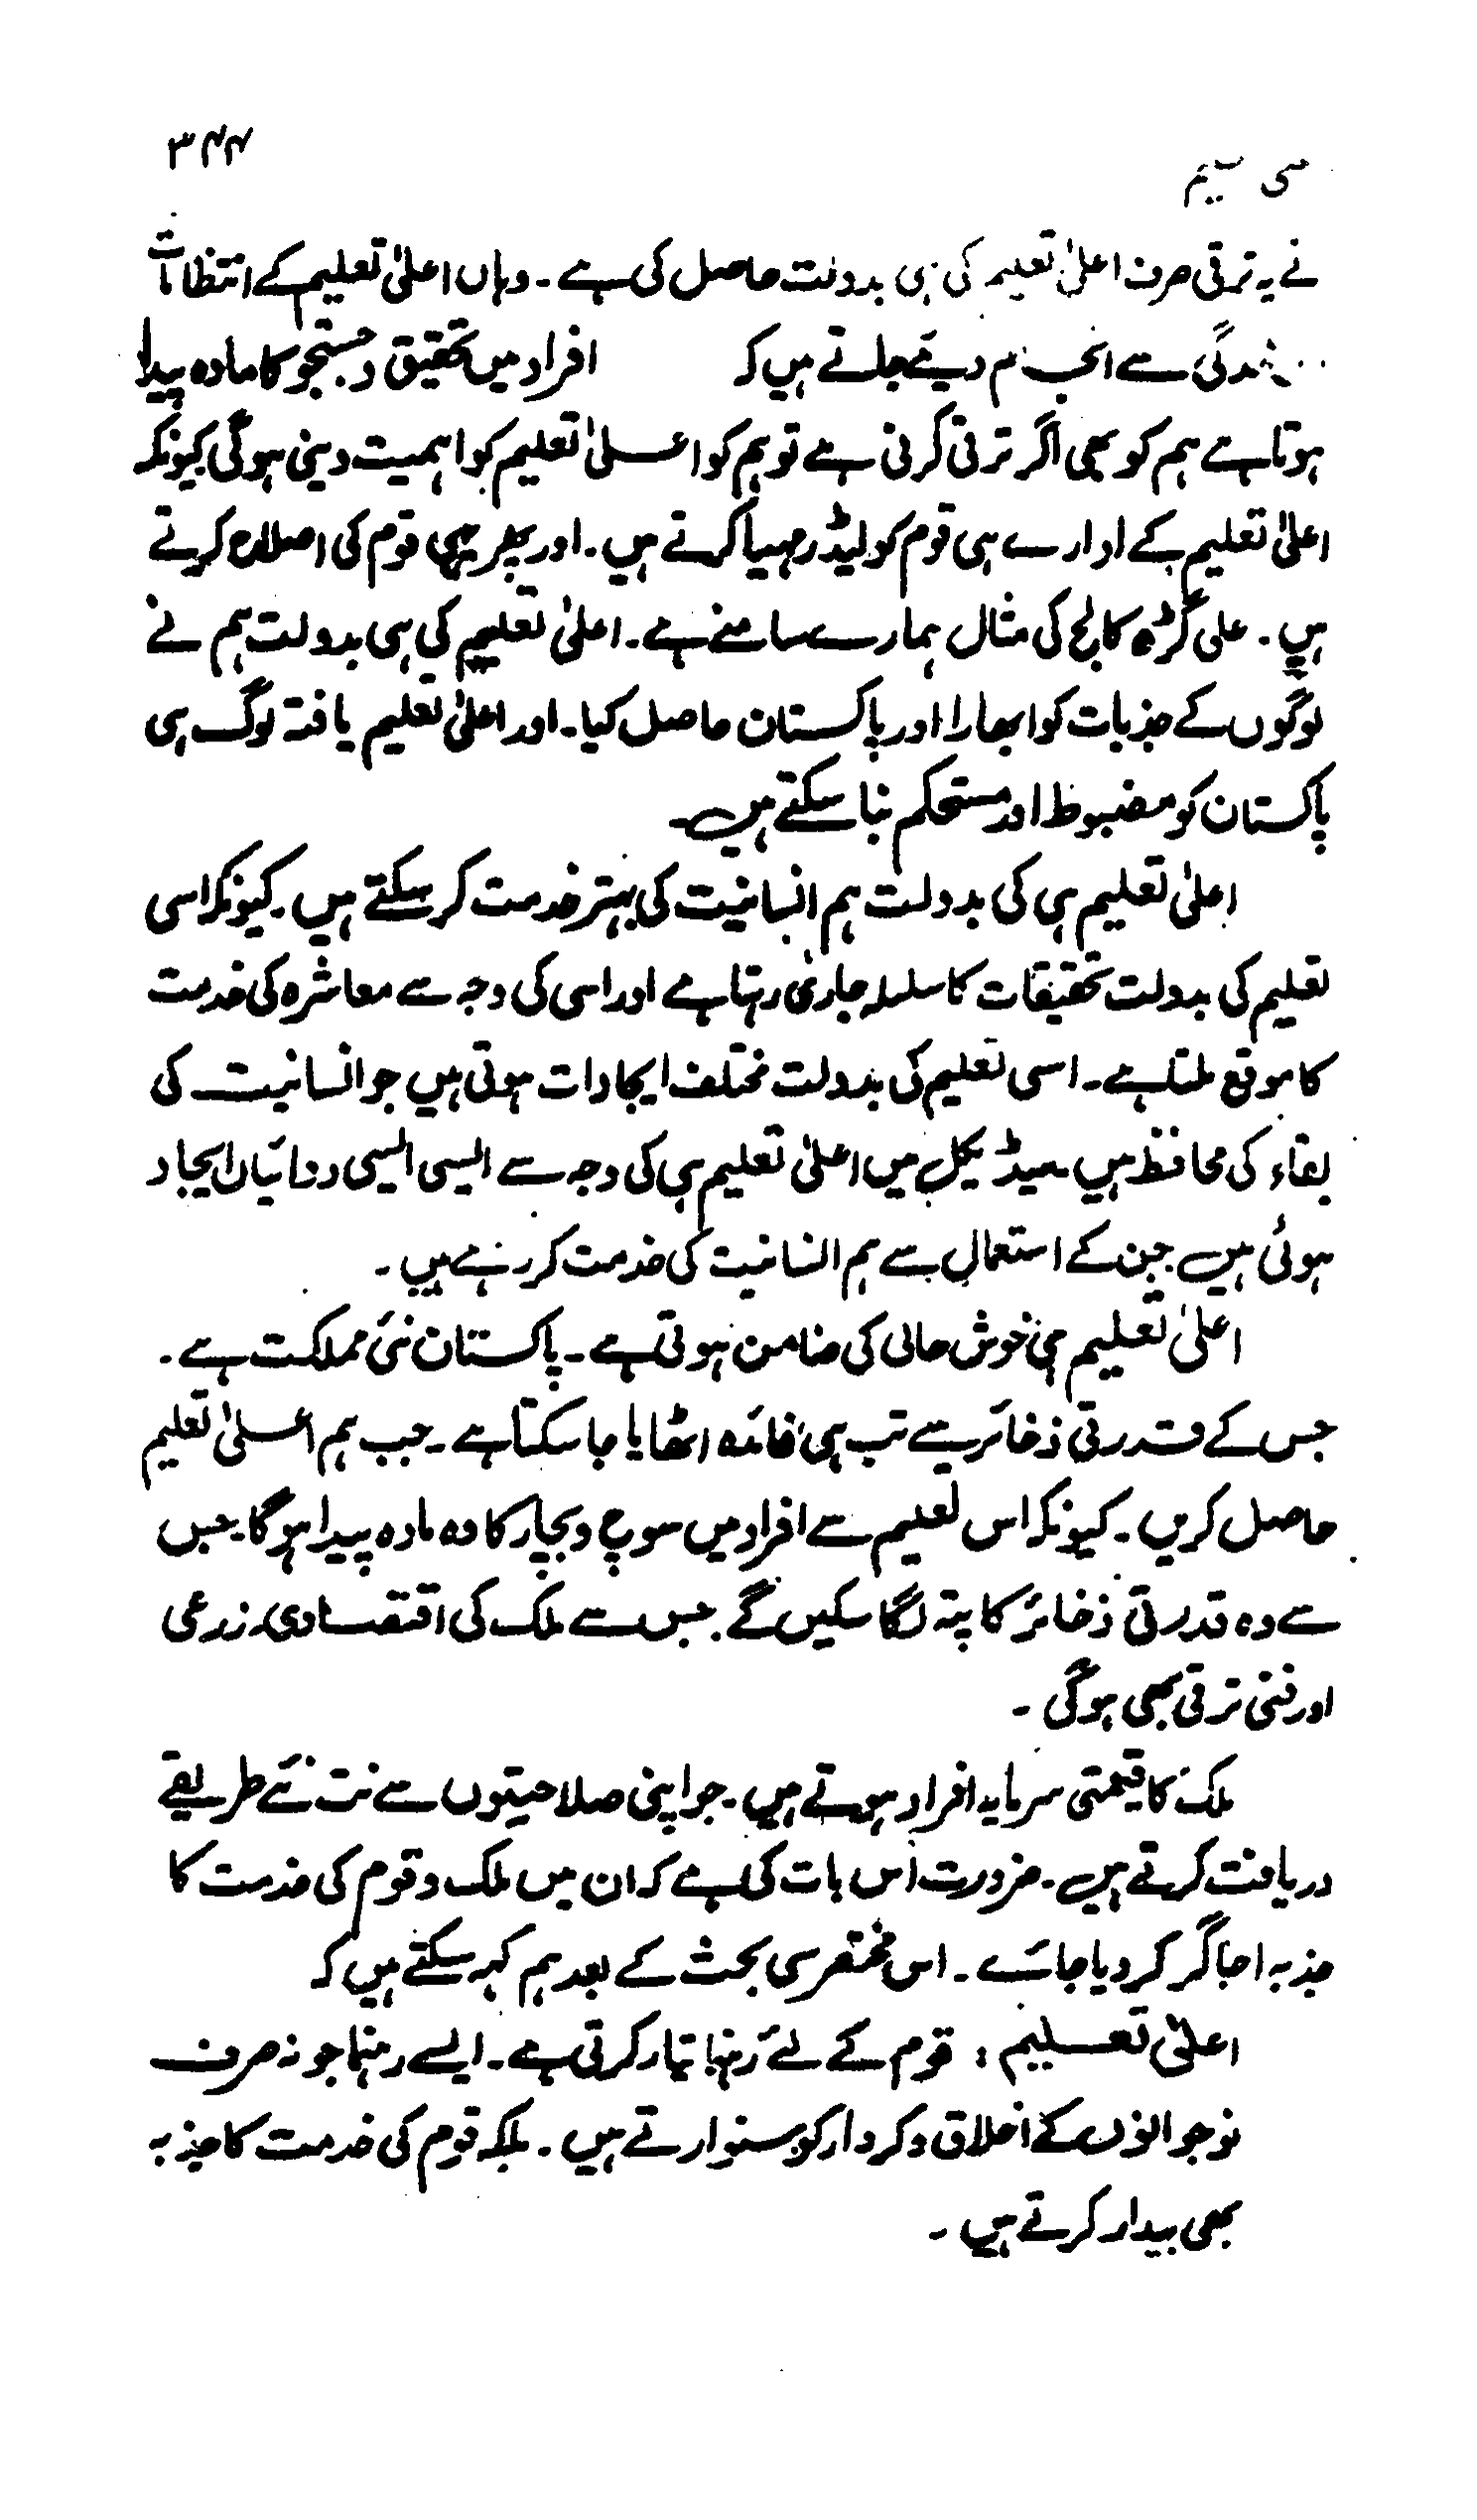 ۳۴۴
نے یہ ترقی صرف اعلیٰ تعلیم کی ہی بدولت حاصل کی ہے ۔ وہاں اعلیٰ تعلیم کے انتظامات
سے انجام دیئے جاتے ہیں کہ افراد میں تحقیق و جستجو کا مادہ پیدا
ہوتا ہے ہم کو بھی اگر ترقی کرنی ہے تو ہم کو اعلیٰ تعلیم کو اہمیت دینی ہوگی کیونکہ
اعلیٰ تعلیم کے ادارے ہی قوم کو لیڈر مہیا کرتے ہیں ۔ اور پھر یہی قوم کی اصلاح کرتے
ہیں ۔ علی گڑھ کالج کی مثال ہمارے سامنے ہے ۔ اعلیٰ تعلیم کی ہی بدولت ہم نے
لوگوں کے جذبات کو ابھارا اور پاکستان حاصل کیا ۔ اور اعلیٰ تعلیم یافتہ لوگ ہی
پاکستان کو مضبوط اور مستحکم بنا سکتے ہیں ۔
اعلیٰ تعلیم ہی کی بدولت ہم انسانیت کی بہتر خدمت کر سکتے ہیں ۔ کیونکہ اسی
تعلیم کی بدولت تحقیقات کا سلسلہ جاری رہتا ہے اور اسی کی وجہ سے معاشرہ کی خدمت
کا موقع ملتا ہے ۔ اسی تعلیم کی بدولت مختلف ایجادات ہوتی ہیں جو انسانیت کی
بقاء کی محافظ ہیں میڈیکل میں اعلیٰ تعلیم ہی کی وجہ سے ایسی ایسی دوائیاں ایجاد
ہوئی ہیں جن کے استعمال سے ہم انسانیت کی خدمت کر رہے ہیں ۔
اعلیٰ تعلیم ہی خوش حالی کی ضامن ہوتی ہے ۔ پاکستان نئی مملکت ہے ۔
جس کے قدرتی ذخائر سے تب ہی فائدہ اٹھایا جا سکتا ہے ۔ جب ہم اعلیٰ تعلیم
حاصل کریں ۔ کیونکہ اس تعلیم سے افراد میں سوچ و بچار کا وہ مادہ پیدا ہوگا ۔ جس
سے وہ قدرتی ذخائر کا پتہ لگا سکیں گے ۔ جس سے ملک کی اقتصادی زرعی
اور فنی ترقی بھی ہوگی ۔
ملک کا قیمتی سرمایہ افراد ہوتے ہیں ۔ جو اپنی صلاحیتوں سے نت نئے طریقے
دریافت کرتے ہیں ۔ ضرورت اس بات کی ہے کہ ان میں ملک و قوم کی خدمت کا
جذبہ اجاگر کر دیا جائے ۔ اس مختصر سی بحث کے بعد ہم کہہ سکتے ہیں کہ
اعلیٰ تعلیم : قوم کے لئے رہنما تیار کرتی ہے ۔ ایسے رہنما جو نہ صرف
نوجوانوں کے اخلاق و کردار کو سنوارتے ہیں ۔ بلکہ قوم کی خدمت کا جذبہ
بھی بیدار کرتے ہیں ۔